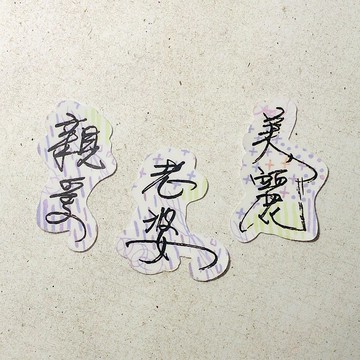 親愛
老婆
美麗